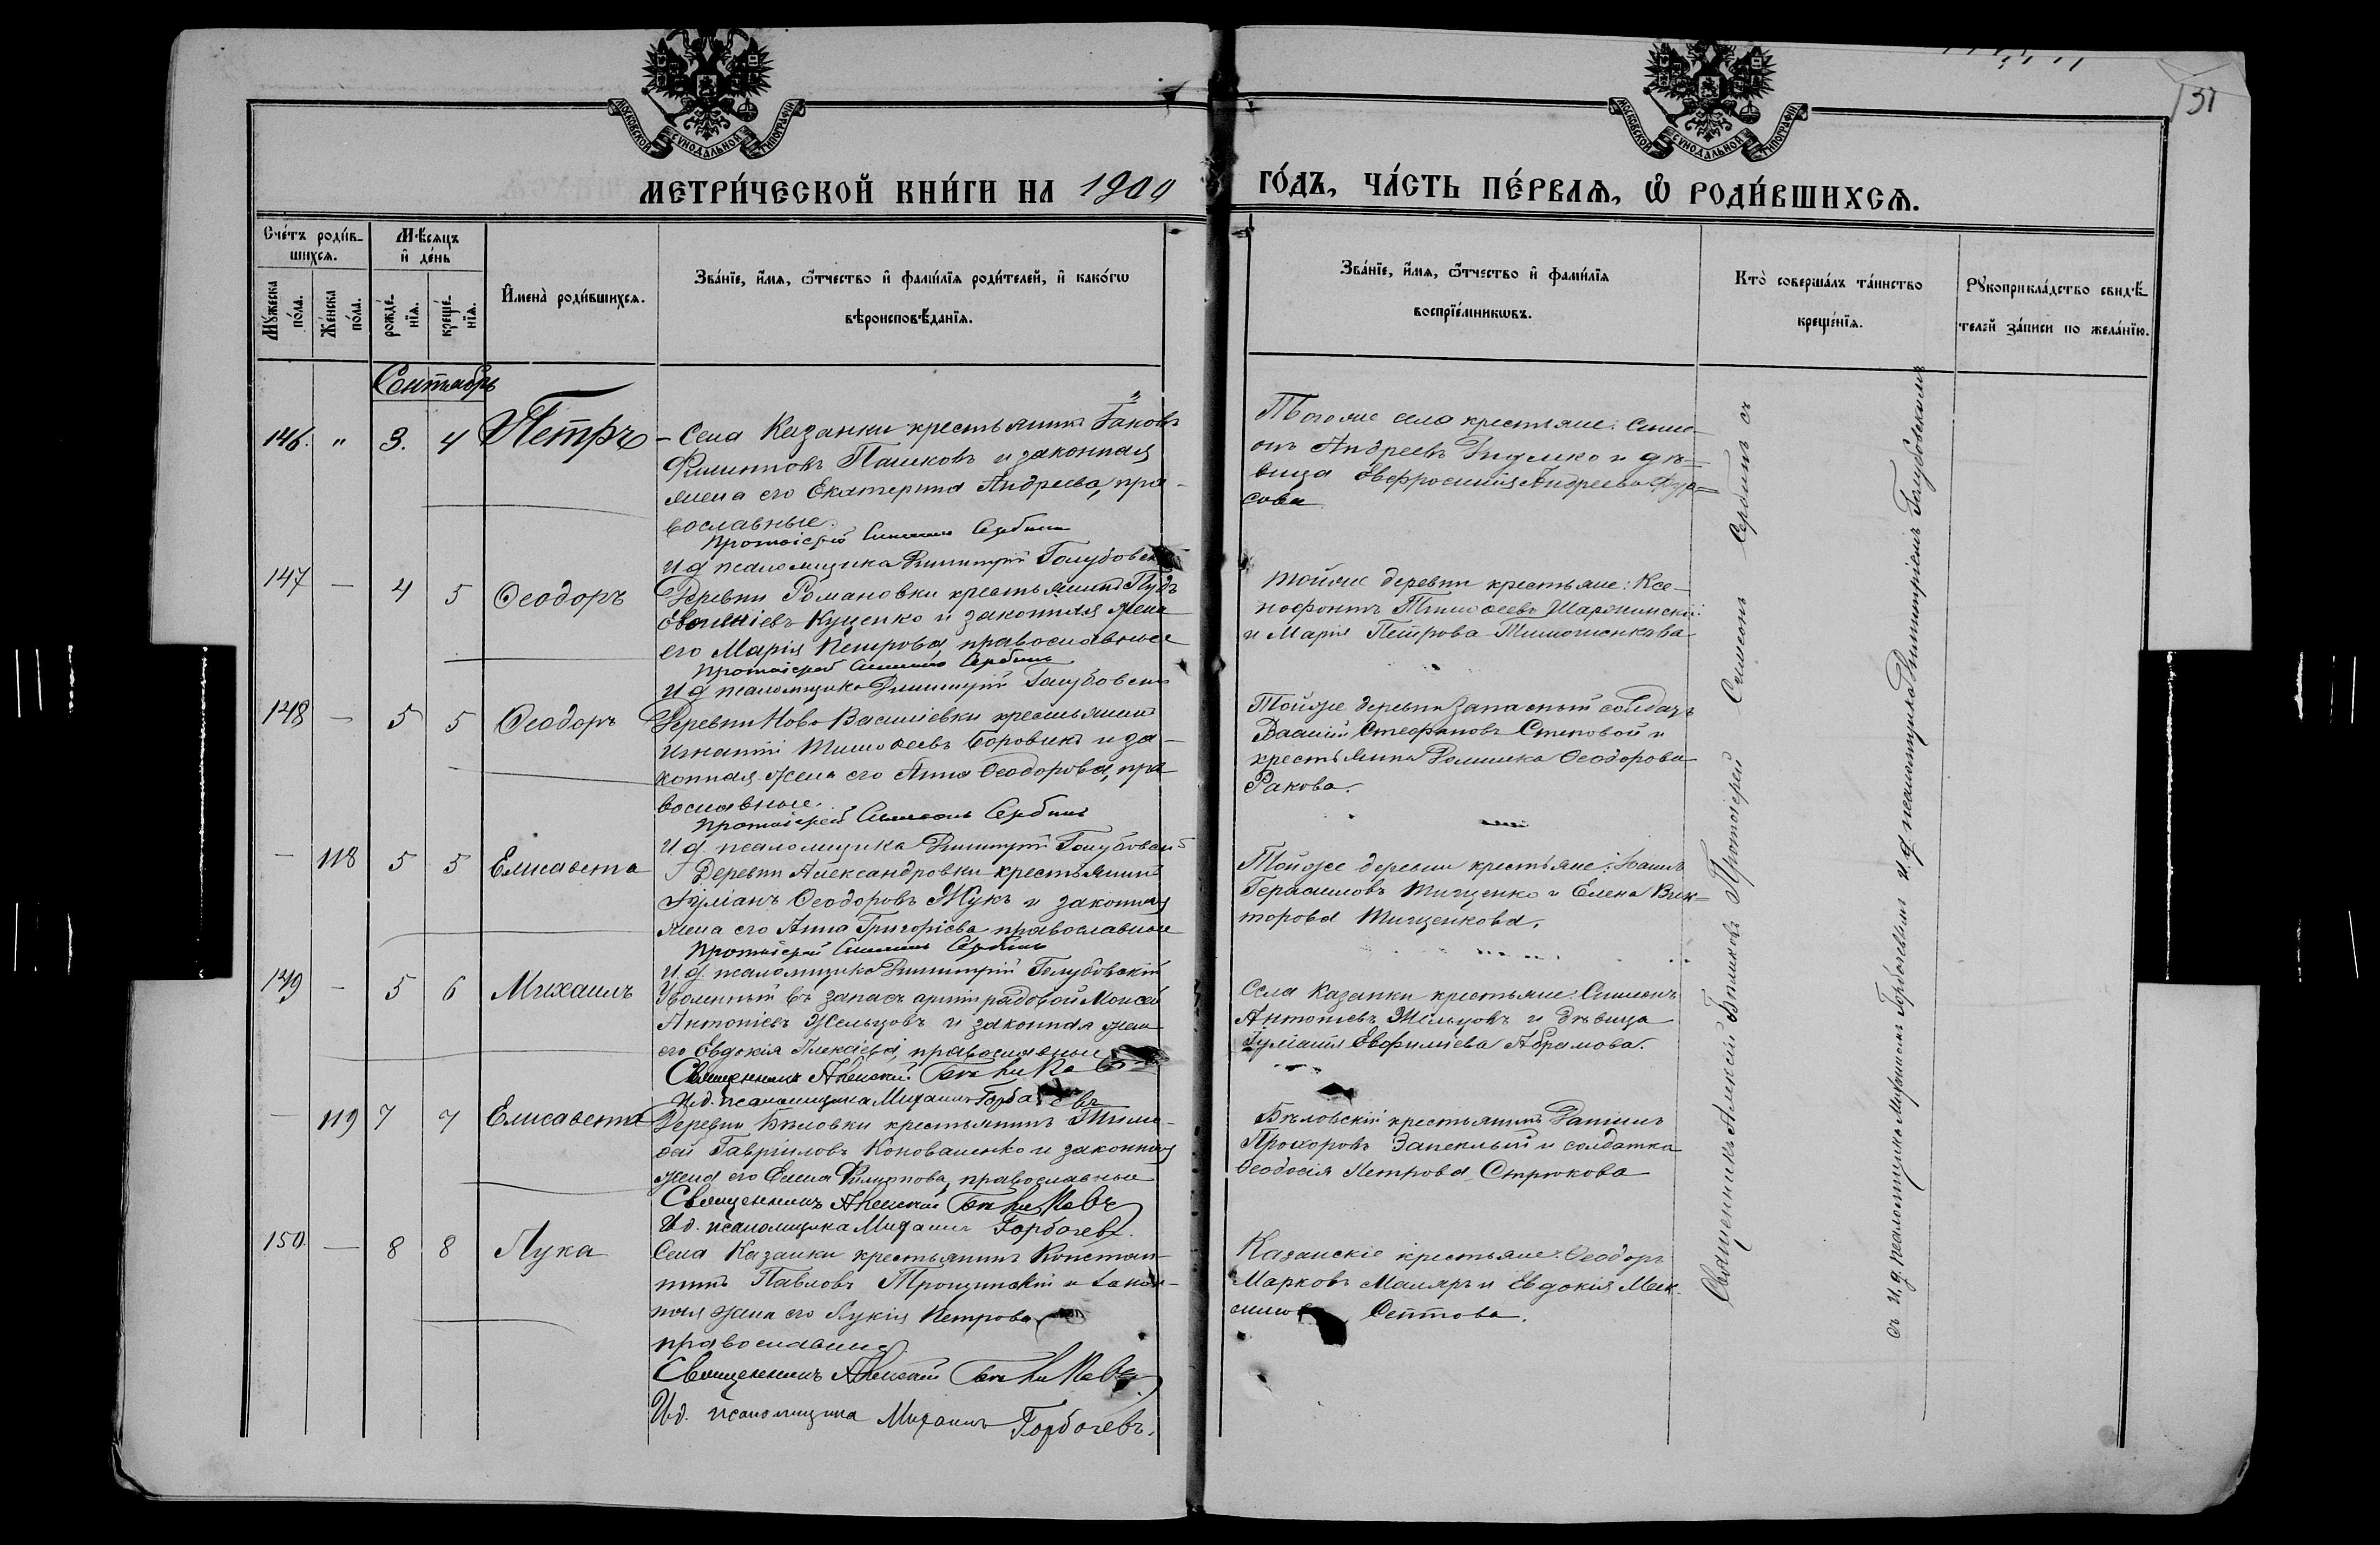 31
МОСКОВСКОЙ СѴНОДАЛЬНОЙ ТИПОГРАФІИ
МОСКОВСКОЙ СѴНОДАЛЬНОЙ ТИПОГРАФІИ
МЕТРИ́ЧЕСКОЙ КНИ́ГИ НА 1900
ГО́ДЪ, ЧА́СТЬ ПЕ́РВАѦ, Ѡ҆ РОДИ́ВШИХСѦ.
Сче́тъ роди́в-
шихсѧ.
Мѣ́сѧцъ
и҆ де́нь
Мꙋ́жеска
по́ла.
Же́нска
по́ла.
рожде́-
нїѧ.
креще́-
нїѧ.
И҆мена̀ роди́вшихсѧ.
Зва́нїе, и҆́мѧ, ѻ҆́тчество и҆ фами́лїѧ роди́телей, и҆ како́гѡ
вѣроисповѣ́данїѧ.
Зва́нїе, и҆́мѧ, ѻ҆́тчество и҆ фами́лїѧ
воспрїе́мникѡвъ.
Кто̀ соверша́лъ та́инство
креще́нїѧ.
Рꙋкоприкла́дство свидѣ́-
телей за́писи по жела́нїю.
Сентябрь
146. " 3. 4 Петръ
- Села Казанки крестьянинъ Іаковъ
Филипповъ Пашковъ и законная
жена его Екатерина Андреева, пра-
вославные.
Протоіерей Симеонъ Сербинъ
И д псаломщика Димитрій Голубовскій
Тогоже села крестьяне: Симе-
онъ Андреевъ и дѣ-
вица Евфросинія Андреева
сова
147 — 4 5 Ѳеодоръ
Деревни Романовки крестьянинъ
Куценко и законная жена
его Марія Петрова, православные
Протоіерей Симеонъ Сербинъ
И д псаломщика Димитрій Голубовскій
Тойже деревни крестьяне: Ксе-
нофонтъ Тимоѳеевъ
и Марія Петрова Тимошенкова
148 — 5 5 Ѳеодоръ
Деревни Ново Василіевки крестьянинъ
Игнатій Тимоѳеевъ Боровикъ и за-
конная жена его Анна Ѳеодорова, пра-
вославные.
Протоіерей Симеонъ Сербинъ
И д. псаломщика Димитрій Голубовскій
Тойже деревни запасный солдатъ
Василій Стефановъ Степовой и
крестьянка Ѳеодорова
Ракова.
— 118 5 5 Елисавета
Деревни Александровки крестьянинъ
Іуліанъ Ѳеодоровъ Жукъ и законная
жена его Анна Григоріева православные
Протоіерей Симеонъ Сербинъ
И. д. псаломщика Димитрій Голубовскій
Тойже деревни крестьяне: Іоаннъ
Герасимовъ Тищенко и Елена Вик-
торова Тищенкова.
149 — 5 6 Михаилъ
Уволенный въ запасъ арміи рядовой Моисей
Антоніевъ Жельцовъ и законная жена
его Евдокія, православные
Священникъ Алексій Бѣликовъ
И.д. псаломщика Михаилъ Горбачевъ
Села Казанки крестьяне: Симеонъ
Антоніевъ Жельцовъ и дѣвица
Іуліанія Евфиміева Абрамова.
— 119 7 7 Елисавета
Деревни Бѣловки крестьянинъ Тимо-
ѳей Гавріиловъ Коноваленко и законная
жена его Елена Филиппова, православные
Священникъ Алексій Бѣликовъ
И.д. псаломщика Михаилъ Горбачевъ.
Бѣловскій крестьянинъ Даніилъ
Прохоровъ Запеклый и солдатка
Ѳеодосія Петрова Стрюкова
150. — 8 8 Лука
Села Казанки крестьянинъ Констан-
тинъ Павловъ Трощинскій и закон-
ная жена его Лукія Петрова
православные
Священникъ Алексій Бѣликовъ
И.д. псаломщика Михаилъ Горбачевъ.
Казанскіе крестьяне: Ѳеодоръ
Марковъ Маляръ и Евдокія Мак-
симова
Священникъ Алексій Бѣликовъ Протоіерей Симеонъ Сербинъ съ
съ И. д. псаломщика Михаиломъ Горбачевымъ и. д. псаломщика Димитріемъ Голубовскимъ